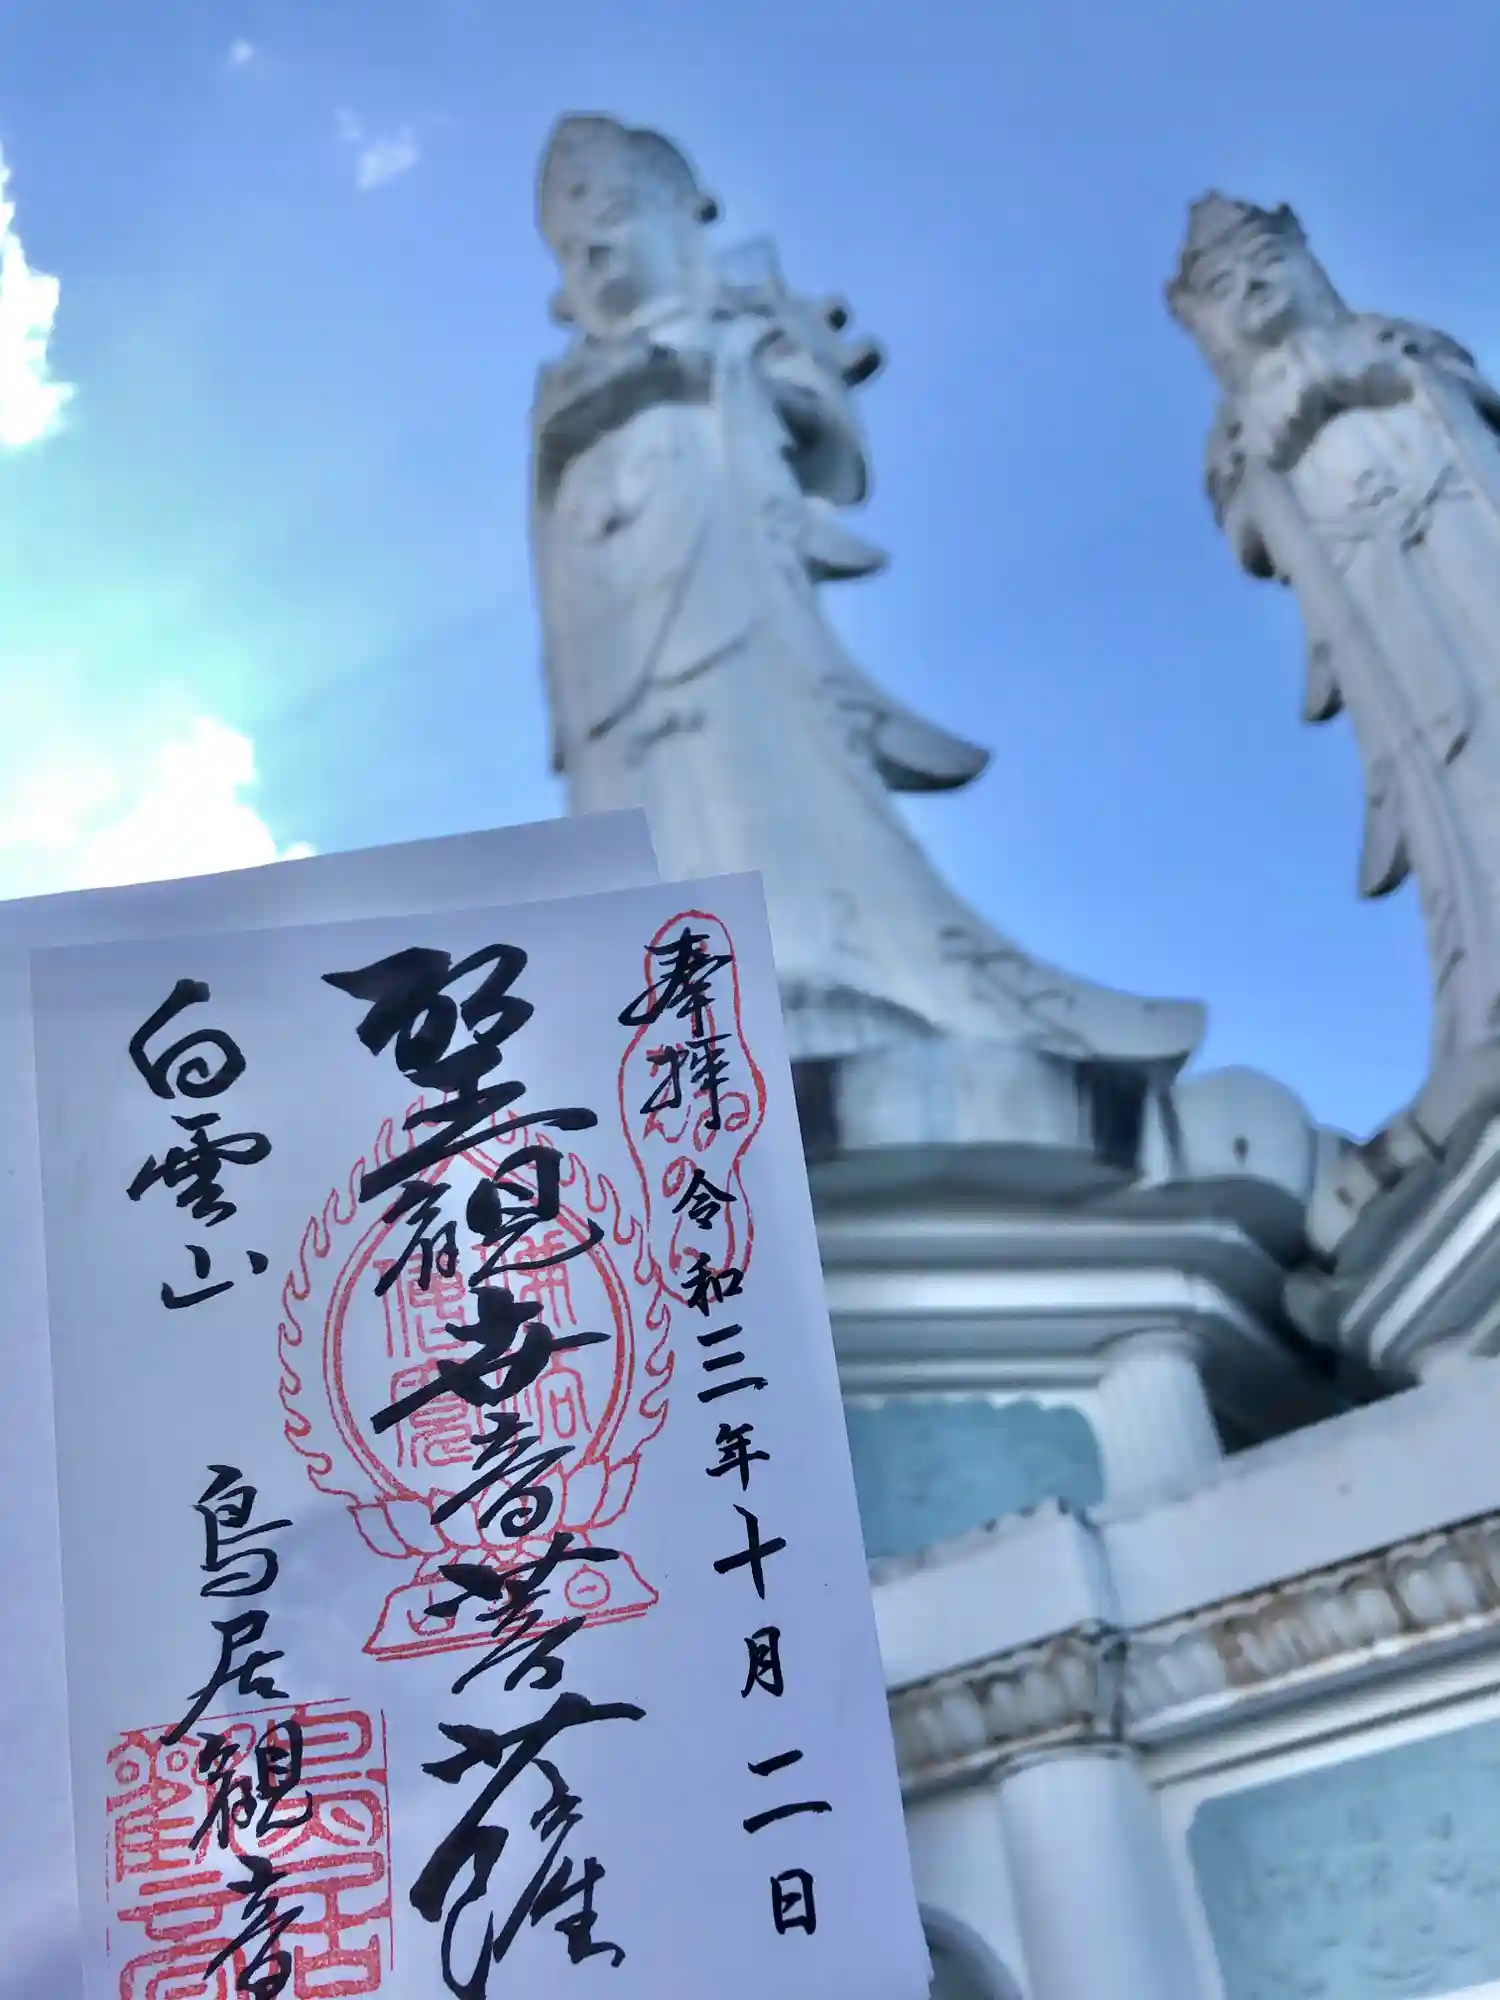 奉拝 令和三年十月二日
聖観世音菩薩
白雲山 鳥居観音